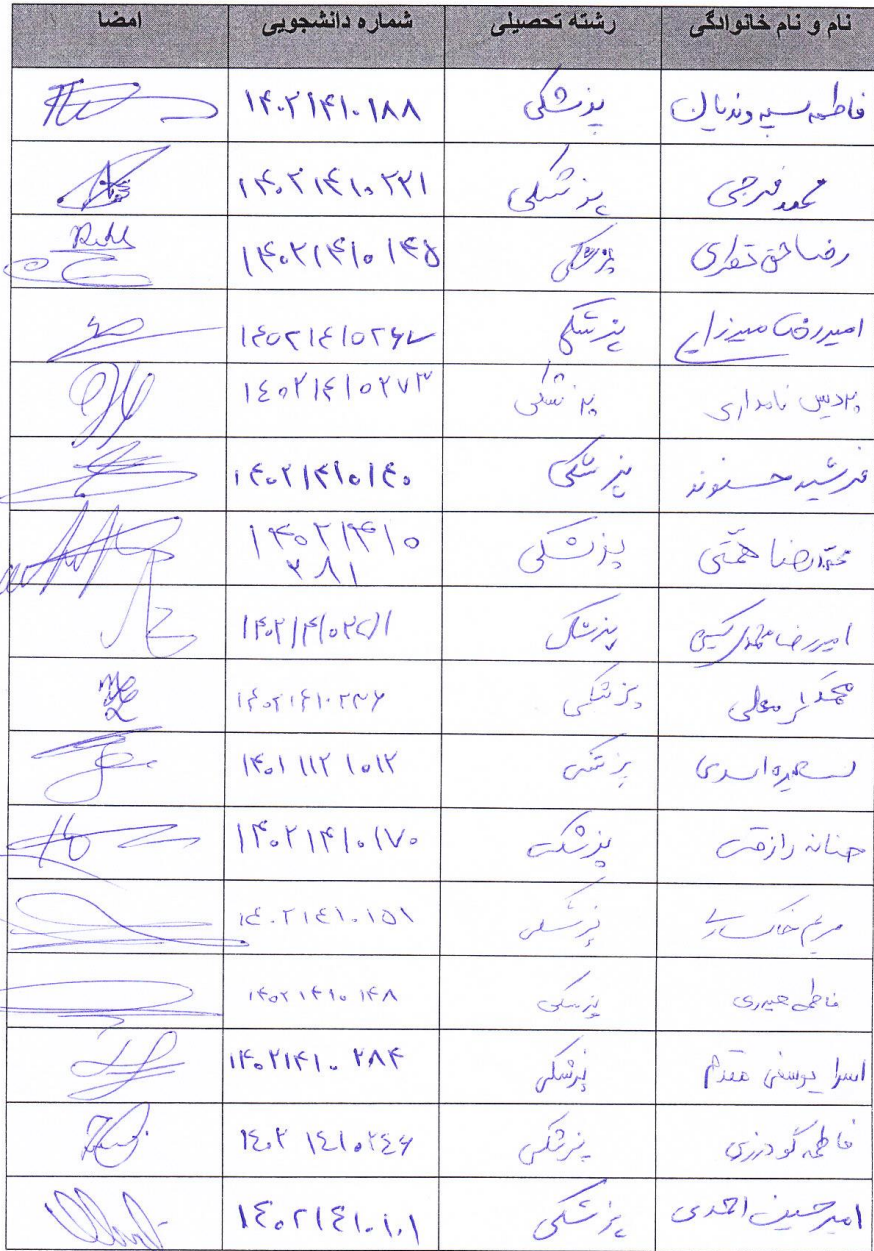 نام و نام خانوادگی رشته تحصیلی شماره دانشجویی امضا
فاطمه سپه وندیان پزشکی ۱۴۰۲۱۴۱۰۱۸۸
محمد فرجی پزشکی ۱۴۰۲۱۴۱۰۲۲۱
رضا حق نظری پزشکی ۱۴۰۲۱۴۱۰۱۴۵
امیررضا میرزایی پزشکی ۱۴۰۲۱۴۱۰۲۶۷
پردیس نامداری پزشکی ۱۴۰۲۱۴۱۰۲۷۳
فرشید حسنوند پزشکی ۱۴۰۲۱۴۱۰۱۴۰
محمدرضا همتی پزشکی ۱۴۰۲۱۴۱۰
۲۸۱
امیررضا پزشکی
محمد پزشکی ۱۴۰۲۱۴۱۰۲۳۶
سعیده اسدی پزشکی ۱۴۰۱۱۱۲۱۰۱۲
حنانه رازقی پزشکی ۱۴۰۲۱۴۱۰۱۷۰
مریم پزشکی ۱۴۰۲۱۴۱۰۱۵۱
فاطمه حیدری پزشکی ۱۴۰۲۱۴۱۰۱۴۸
اسرا یوسفی مقدم پزشکی ۱۴۰۲۱۴۱۰۲۸۴
فاطمه گودرزی پزشکی ۱۴۰۲۱۴۱۰۲۴۶
امیرحسین احمدی پزشکی ۱۴۰۲۱۴۱۰۱۰۱